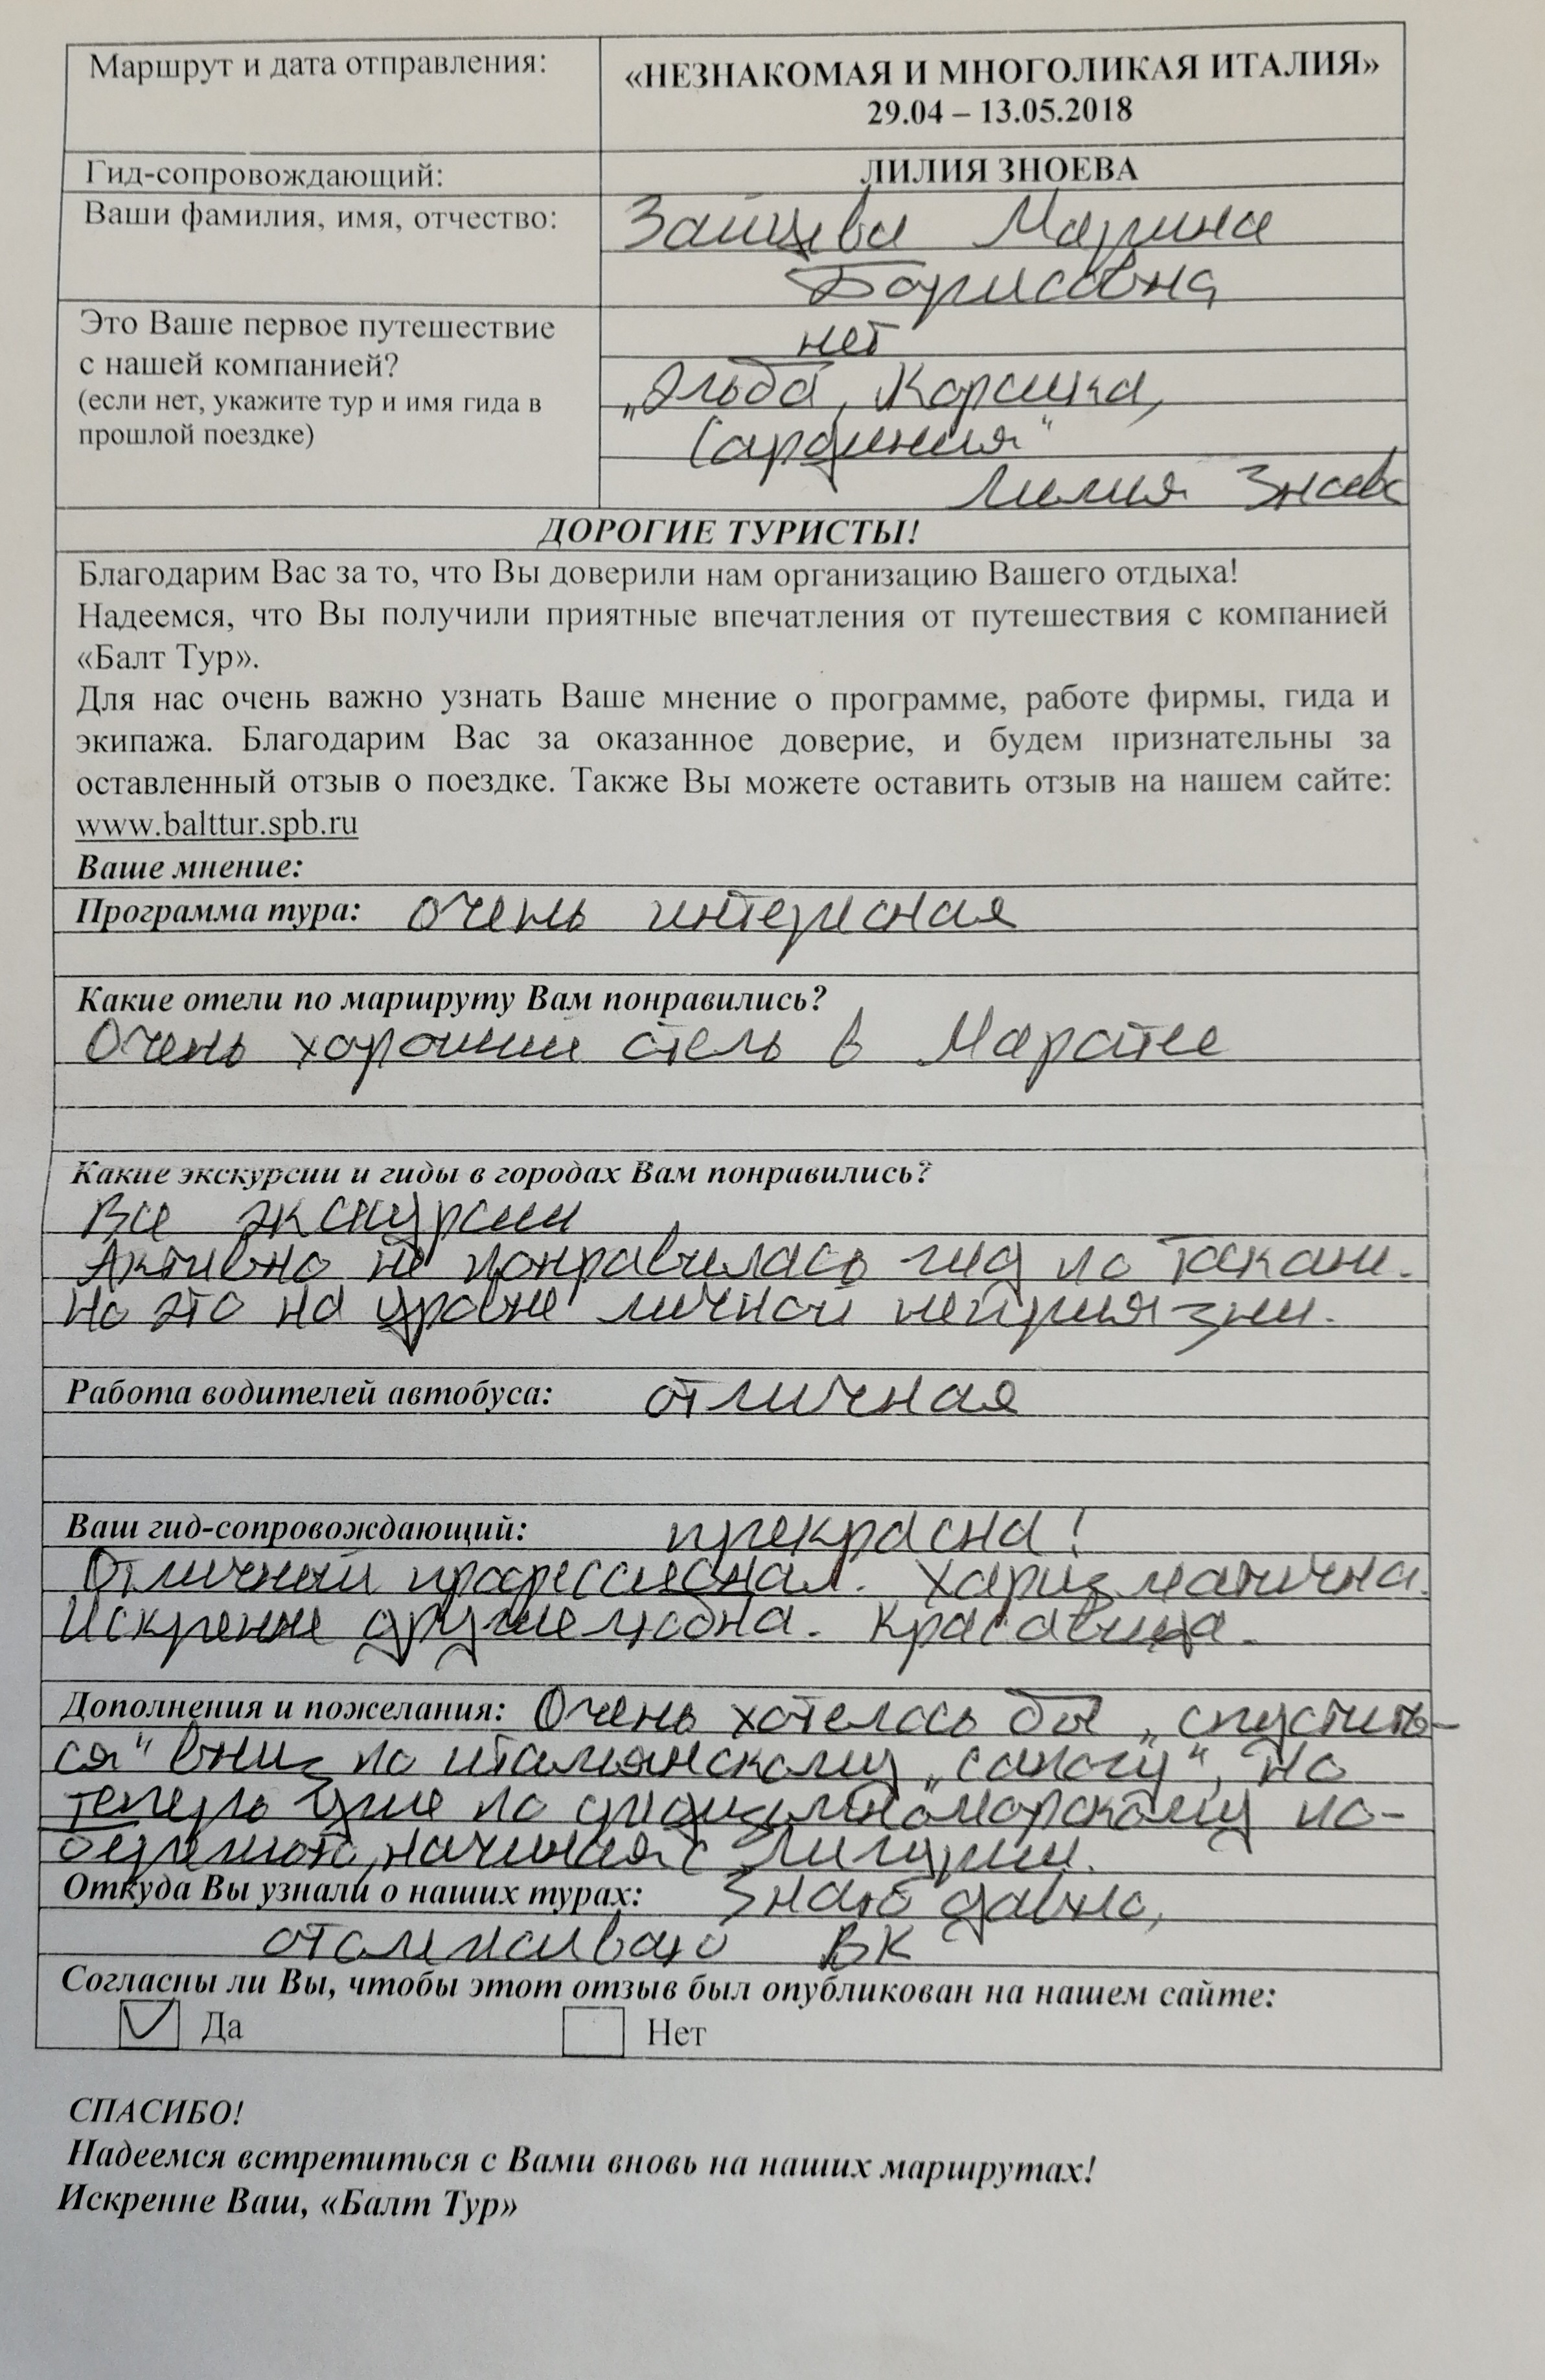 Маршрут и дата отправления:
«НЕЗНАКОМАЯ И МНОГОЛИКАЯ ИТАЛИЯ»
29.04 – 13.05.2018
Гид-сопровождающий:
ЛИЛИЯ ЗНОЕВА
Ваши фамилия, имя, отчество:
Зайцева Марина
Борисовна
Это Ваше первое путешествие
с нашей компанией?
(если нет, укажите тур и имя гида в
прошлой поездке)
нет
„Эльба, Корсика,
Сардиния"
Лилия Зноева
ДОРОГИЕ ТУРИСТЫ!
Благодарим Вас за то, что Вы доверили нам организацию Вашего отдыха!
Надеемся, что Вы получили приятные впечатления от путешествия с компанией
«Балт Тур».
Для нас очень важно узнать Ваше мнение о программе, работе фирмы, гида и
экипажа. Благодарим Вас за оказанное доверие, и будем признательны за
оставленный отзыв о поездке. Также Вы можете оставить отзыв на нашем сайте:
www.balttur.spb.ru
Ваше мнение:
Программа тура: очень интересная
Какие отели по маршруту Вам понравились?
Очень хороший отель в Маратее
Какие экскурсии и гиды в городах Вам понравились?
Все экскурсии
Активно не понравилась гид по Тоскане.
Но это на уровне личной неприязни.
Работа водителей автобуса: отличная
Ваш гид-сопровождающий: прекрасна!
Отличный профессионал. Харизматична.
Искренне дружелюбна. Красавица.
Дополнения и пожелания: Очень хотелось бы „спустить-
ся" вниз по итальянскому „сапогу", но
теперь уже по средиземноморскому по-
бережью, начиная с Лигурии.
Откуда Вы узнали о наших турах: Знаю давно,
отслеживаю ВК
Согласны ли Вы, чтобы этот отзыв был опубликован на нашем сайте:
Да Нет
СПАСИБО!
Надеемся встретиться с Вами вновь на наших маршрутах!
Искренне Ваш, «Балт Тур»